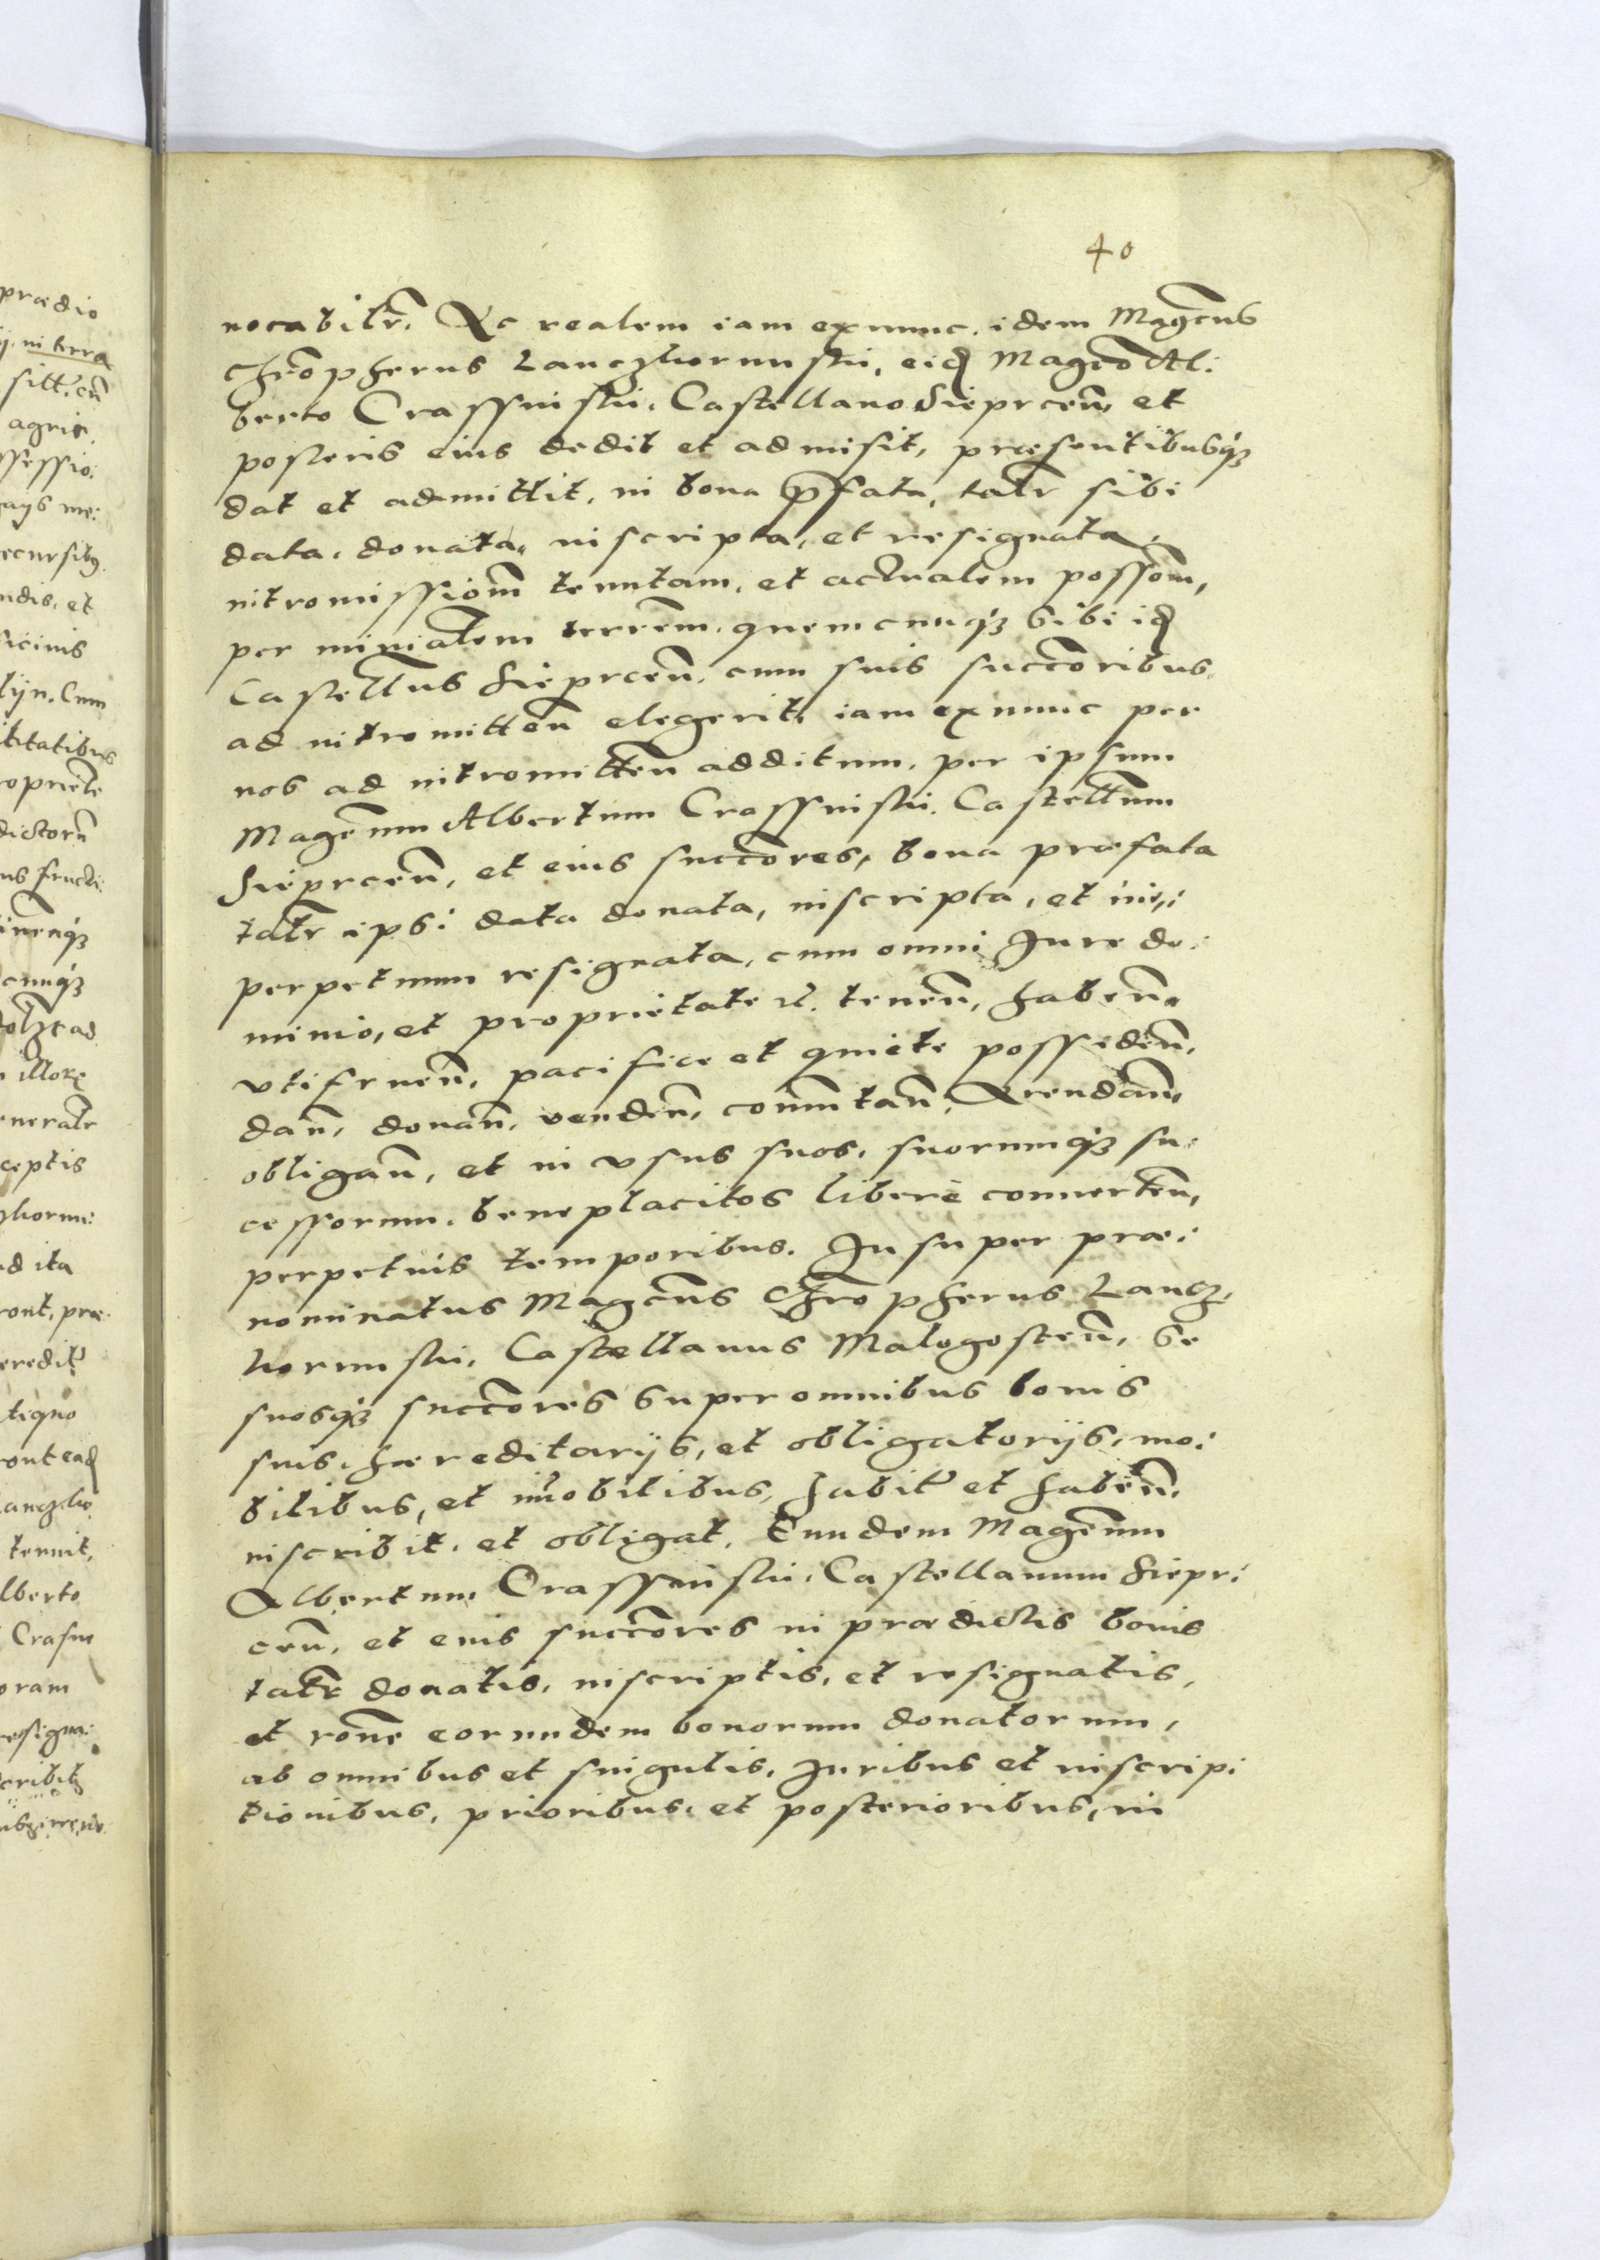 40
nocabilr̃. Ac realem iam exnunc. idem Magcñus
Chrõpherus Lanczkorunskii, eid Magcõ Al:
berto Crassinskii. Castellano Sieprceñ. et
posteris eius dedit et admisit, præsentibusq3
dat et admittit, in bona p̃fata, talr̃ sibi
data. donata, inscripta, et resignata,
intromissioñm tenutam, et actualem possoñm,
per ministalem terrem. quemcunq3 sibi id
Castellñus Sieprceñ. cum suis succõribus
ad intromitteñ elegerit, iam exnunc per
nos ad intromitteñ additum, per ipsum
Magcñum Albertum Crassinskii. Castellñum
Sieprceñ, et eius succõres, bona præfata
talr̃ ipsi data donata, inscripta, et in:
perpetuum resignata, cum omni Jure do:
minio, et proprietate rc̃. teneñ, habeñ.
vtifrueñ, pacifice et quiete possideñ,
dañ, donañ. vendeñ, com̃utañ, Arendañ,
obligañ, et in vsus suos. suorumq3 su:
cessorum. beneplacitos libere conuerteñ,
perpetuis temporibus. Insuper præ:
nominatus Magcñus Chrõpherus Lancz:
korunskii, Castellanus Malogosteñ, se
suosq3 succõres super omnibus bonis
suis, hæreditarijs, et obligatorijs, mo:
bilibus, et im̃obilibus, habit' et habeñ.
inscribit. et obligat. Eundem Magcñum
Albertum Crassinskii. Castellanum Siepr:
ceñ, et eius succõres in prædictis bonis
talr̃ donatis, inscriptis, et resignatis,
et roñe eorundem bonorum donatorum,
ab omnibus et singulis, Juribus et inscrip:
tionibus, prioribus, et posterioribus, in